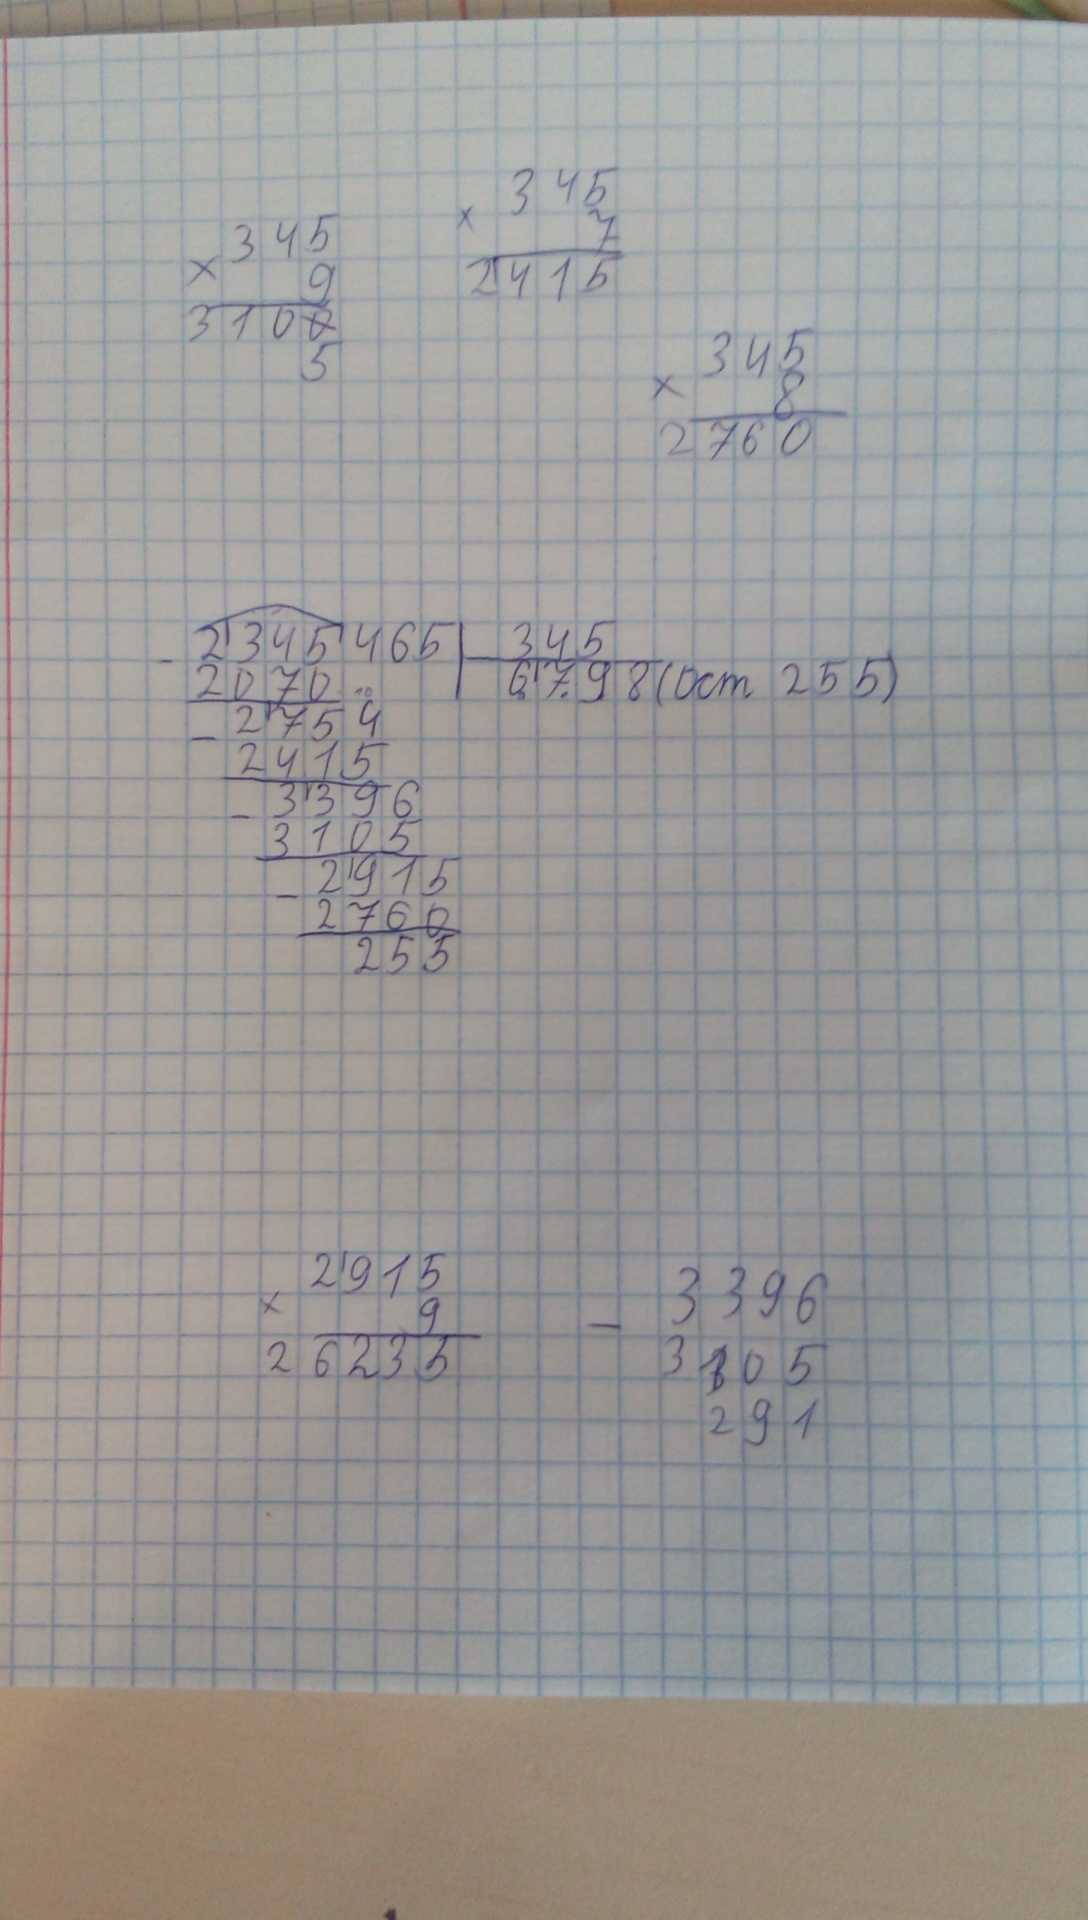 345
× 9
3100
5
345
× 7
2415
345
× 8
2760
- 2345465 | 345
2070 6798 (ост 255)
- 2754
2415
- 3396
3105
- 2915
2760
255
2915
× 9
26235
- 3396
3105
291